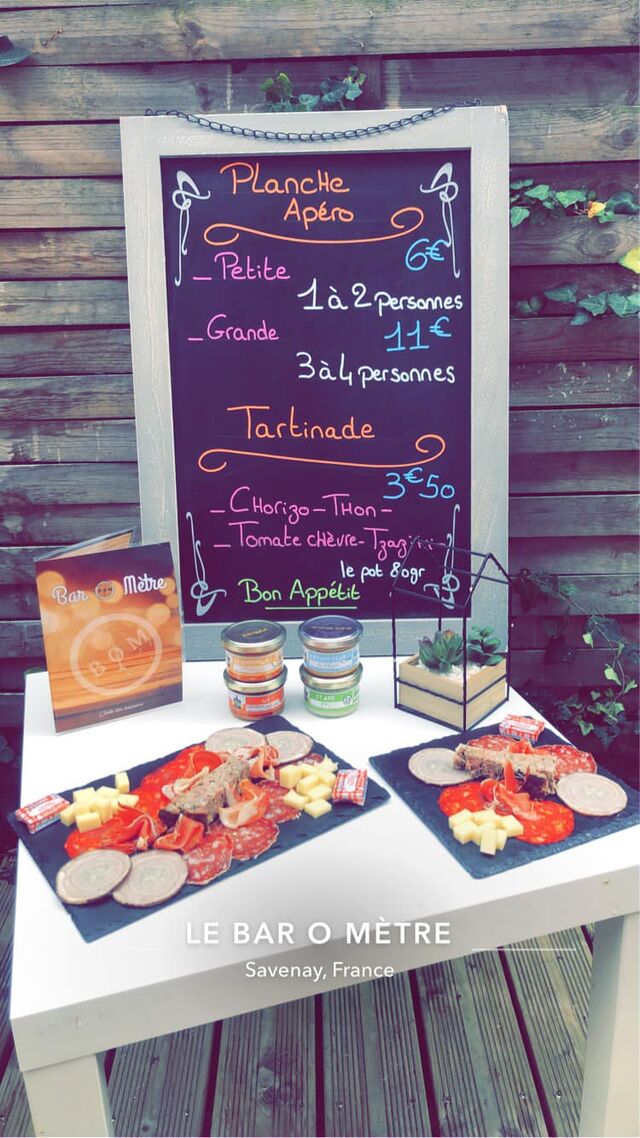 Planche
Apéro
6€
- Petite
1 à 2 personnes
- Grande
11€
3 à 4 personnes
Tartinade
3€50
- Chorizo - Thon -
- Tomate chèvre -
le pot 80gr
Bon Appétit
Bar BOM Mètre
BOM
LE BAR O MÈTRE
Savenay, France